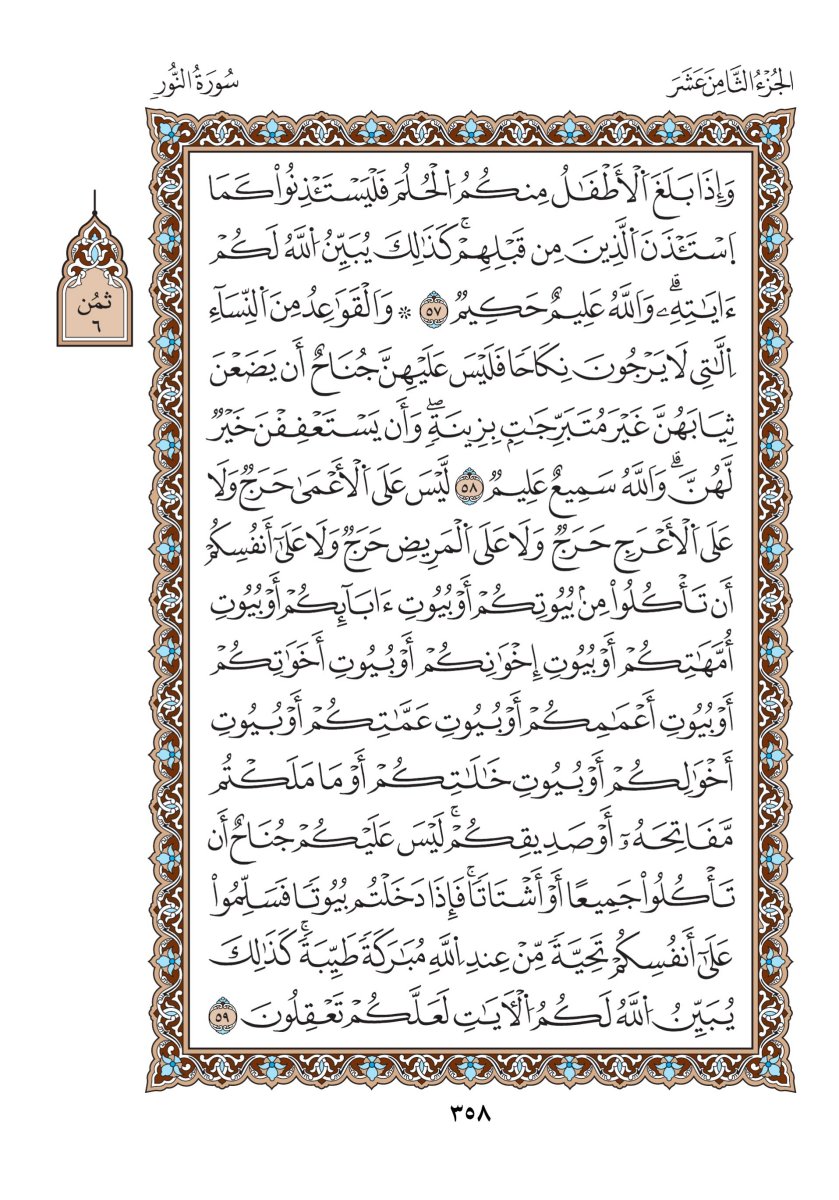 الجُزْءُ الثَّامِنَ عَشَرَ
سُورَةُ النُّورِ
وَإِذَا بَلَغَ اَ۬لْأَطْفَٰلُ مِنكُمُ اُ۬لْحُلُمَ فَلْيَسْتَـْٔذِنُواْ كَمَا
اَ۪سْتَـْٔذَنَ اَ۬لَّذِينَ مِن قَبْلِهِمْۚ كَذَٰلِكَ يُبَيِّنُ اُ۬للَّهُ لَكُمْ
ءَايَٰتِهِۦۗ وَاَللَّهُ عَلِيمٌ حَكِيمٌ ٥٧ ۞ وَالْقَوَٰعِدُ مِنَ اَ۬لنِّسَآءِ
اِ۬لَّٰتِى لَا يَرْجُونَ نِكَاحٗا فَلَيْسَ عَلَيْهِنَّ جُنَاحٌ أَن يَضَعْنَ
ثِيَابَهُنَّ غَيْرَ مُتَبَرِّجَٰتِۢ بِزِينَةٖۖ وَأَن يَسْتَعْفِفْنَ خَيْرٞ
لَّهُنَّۗ وَاَللَّهُ سَمِيعٌ عَلِيمٞ ٥٨ لَّيْسَ عَلَى اَ۬لْأَعْمَىٰ حَرَجٞ وَلَا
عَلَى اَ۬لْأَعْرَجِ حَرَجٞ وَلَا عَلَى اَ۬لْمَرِيضِ حَرَجٞ وَلَا عَلَىٰٓ أَنفُسِكُمْ
أَن تَأْكُلُواْ مِنۢ بُيُوتِكُمْ أَوْ بُيُوتِ ءَابَآئِكُمْ أَوْ بُيُوتِ
أُمَّهَٰتِكُمْ أَوْ بُيُوتِ إِخْوَٰنِكُمْ أَوْ بُيُوتِ أَخَوَٰتِكُمْ
أَوْ بُيُوتِ أَعْمَٰمِكُمْ أَوْ بُيُوتِ عَمَّٰتِكُمْ أَوْ بُيُوتِ
أَخْوَٰلِكُمْ أَوْ بُيُوتِ خَٰلَٰتِكُمْ أَوْ مَا مَلَكْتُم
مَّفَاتِحَهُۥٓ أَوْ صَدِيقِكُمْۚ لَيْسَ عَلَيْكُمْ جُنَاحٌ أَن
تَأْكُلُواْ جَمِيعًا أَوْ أَشْتَاتٗاۚ فَإِذَا دَخَلْتُم بُيُوتٗا فَسَلِّمُواْ
عَلَىٰٓ أَنفُسِكُمْ تَحِيَّةٗ مِّنْ عِندِ اِ۬للَّهِ مُبَٰرَكَةٗ طَيِّبَةٗۚ كَذَٰلِكَ
يُبَيِّنُ اُ۬للَّهُ لَكُمُ اُ۬لْأٓيَٰتِ لَعَلَّكُمْ تَعْقِلُونَ ٥٩
ثُمُن
٦
٣٥٨